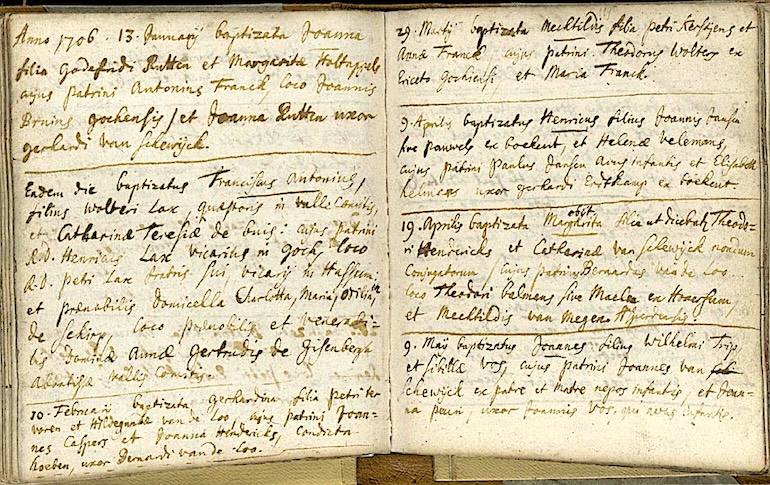 Anno 1706. 13. Januarij baptizata Joanna
filia Godefridi Rutten et Margaritæ Holtappels
cujus patrini Antonius Franck, loco Joannis
Bruins gochensis, et Joanna Rutten uxor
gerhardi van Schewijck.
Eadem die baptizatus Franciscus Antonius,
filius wolteri Lax quæstoris in valle Comitis,
et Catharinæ Teresiæ de buis: cujus patrini
R.D. Henricus Lax vicarius in goch, loco
R.D. petri Lax fratris sui, vicarij in Hassum,
et prænobilis domicella Charlotta, Maria,
de Schirp, loco prænobilis et venerabi-
lis Dominæ Annæ gertrudis de
Abbatissæ vallis Comitis.
10. Februarij baptizata gerhardina filia petri ter
voren et Hildegundæ van de Loo, cujus patrini Joan-
nes Caspers et Joanna Hendericks, Condicta
hoeben, uxor Bernardi van de Loo.
29. Martij baptizata Mechtildis filia petri Kerstjens et
Annæ Franck: cujus patrini Theodorus Wolters ex
Ericeto gochiensi et Maria Franck.
9. Aprilis baptizatus Henricus filius Joannis Jansen
sive pauwels ex boekent, et Helenæ velemans,
cujus patrini Paulus Jansen Avus infantis et Elisabeth
uxor gerhardi ex boekent
obijt
19. Aprilis baptizata Margarita filia ut dicebatur Theodo-
ri Hendericks et Catharinæ van Schewijck nondum
Conjugatorum, Cujus patrini Bernardus van de Loo
loco Theodori belmans sive Maelen ex Hoversum,
et Mechtildis van Megen
9. Maij baptizatus Joannes filius wilhelmi Trip
et sibillæ Vos, cujus patrini Joannes van
Schewijck ex patre et matre nepos infantis, et Joan-
na uxor Joannis Vos. infantis